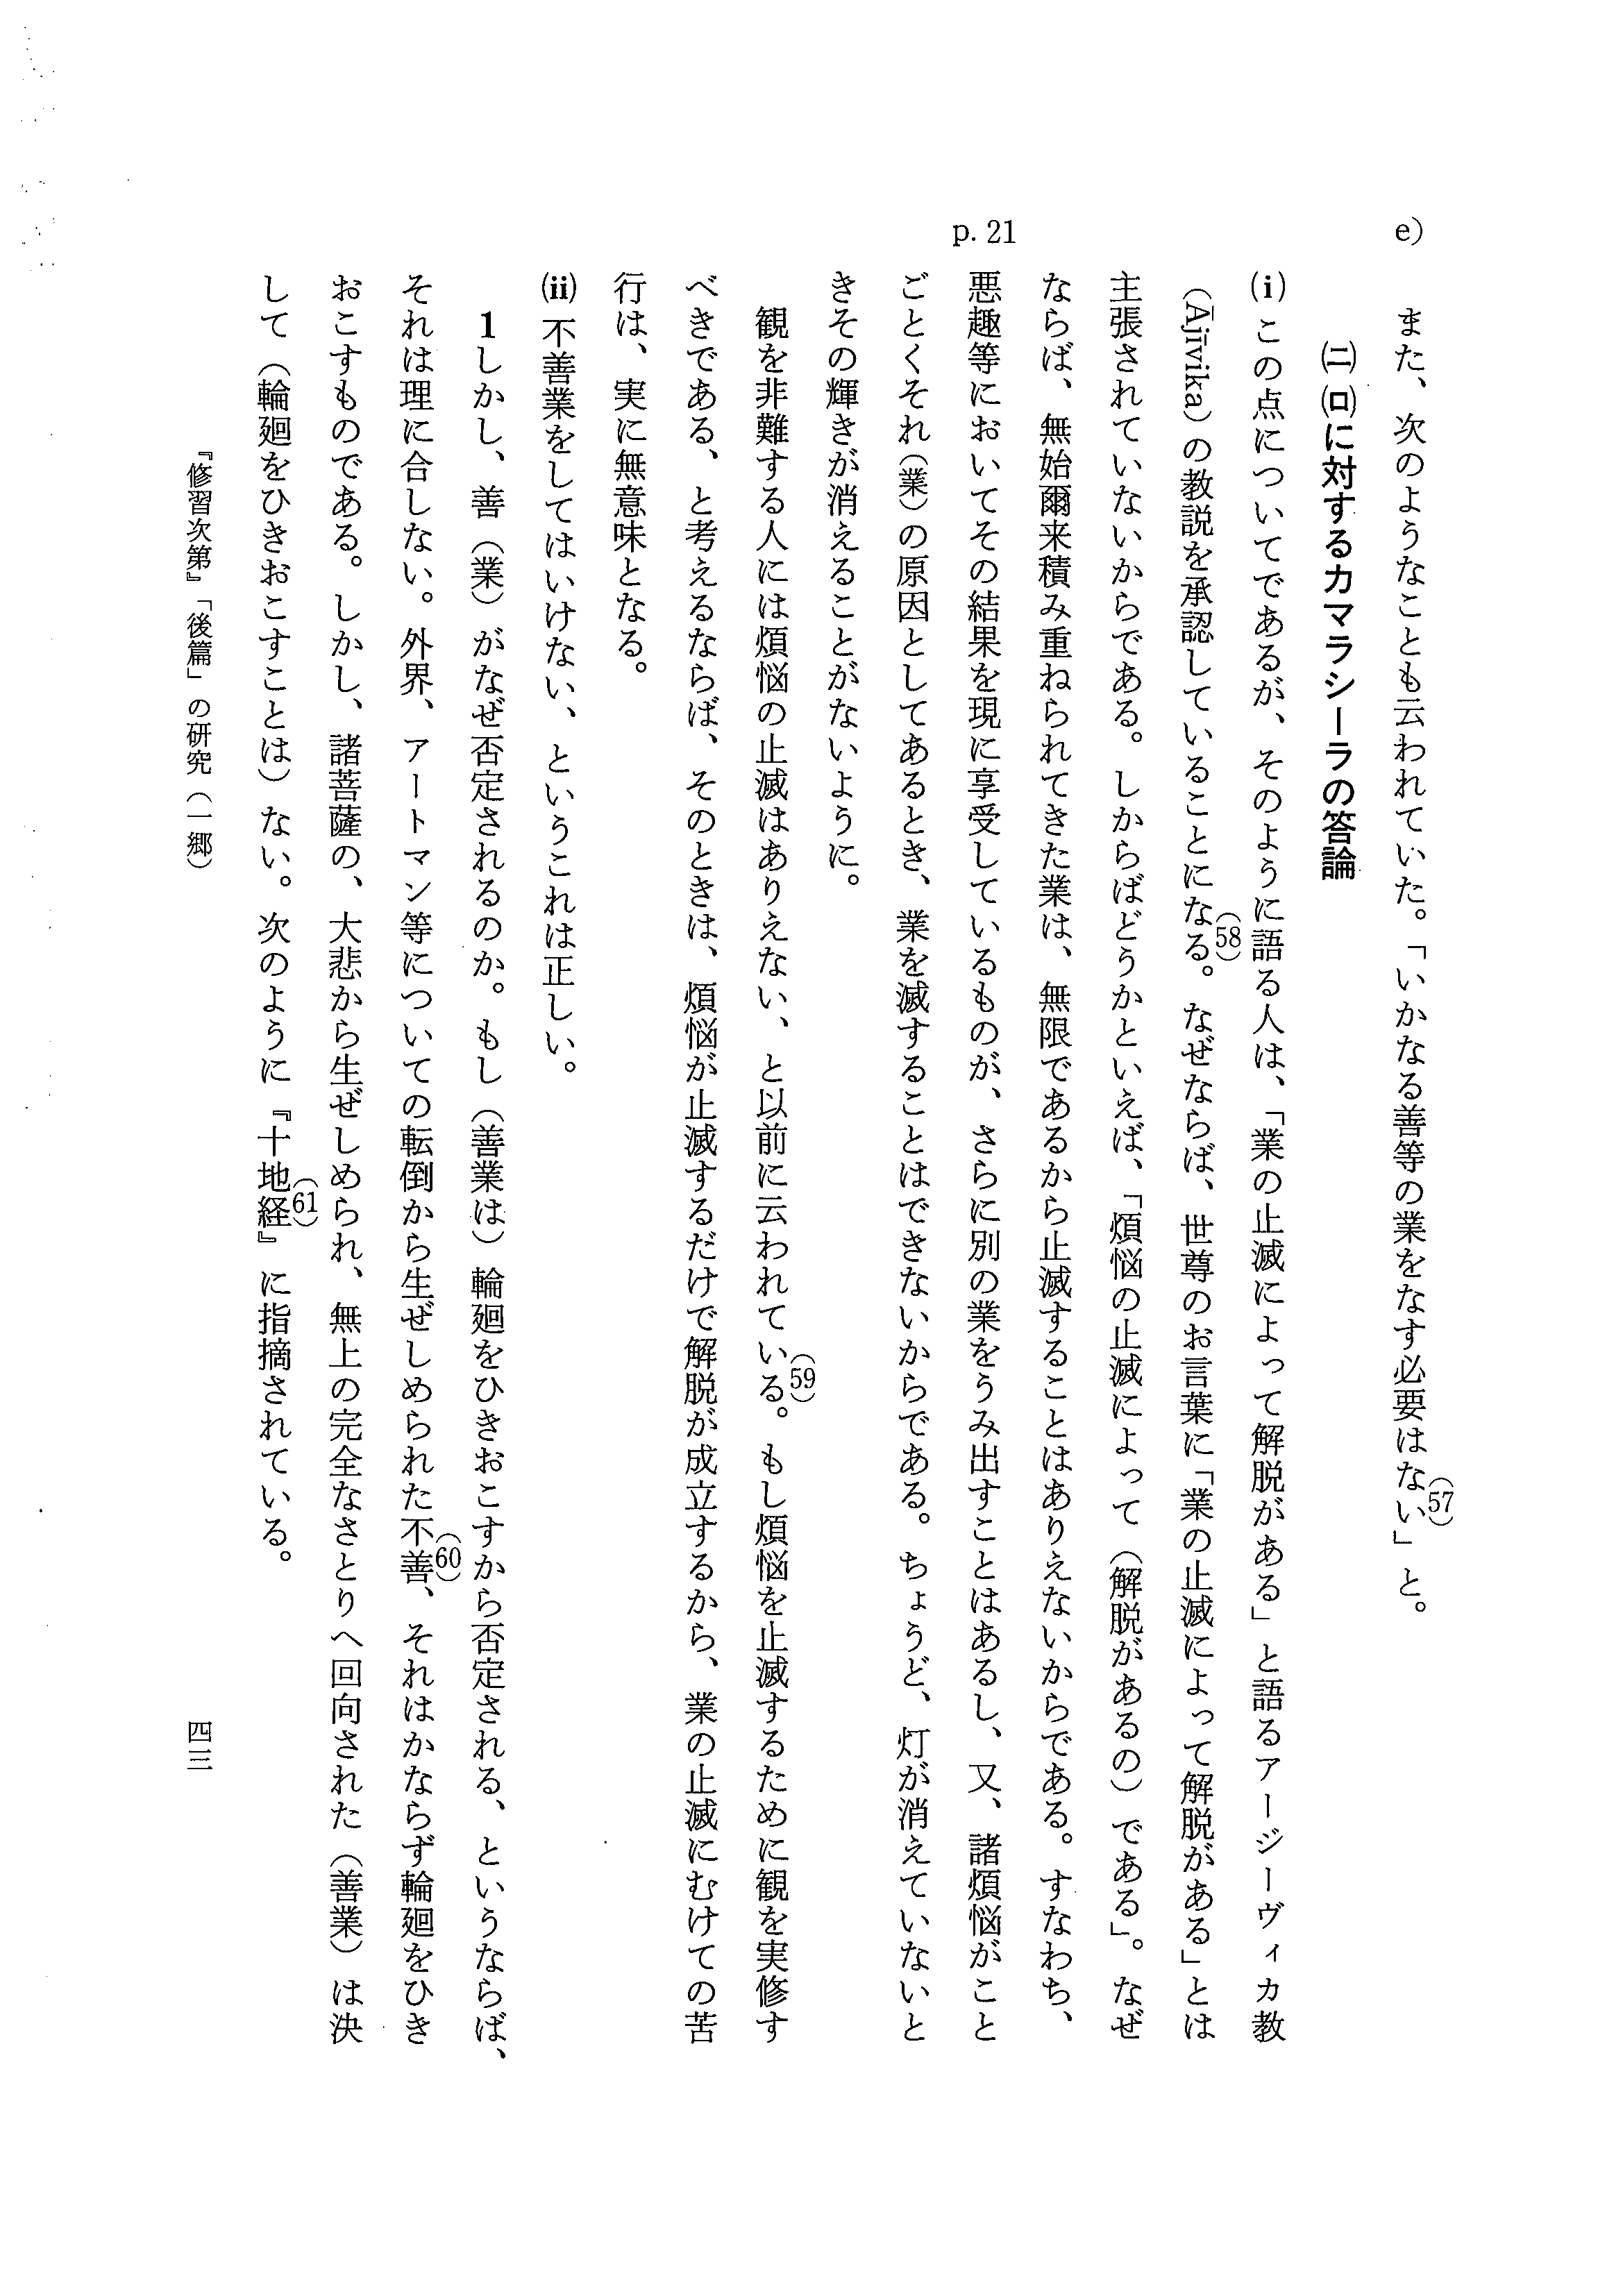 e)
また、次のようなことも云われていた。「いかなる善等の業をなす必要はない(57)」と。
㈡ ㈺に対するカマラシーラの答論
(i) この点についてであるが、そのように語る人は、「業の止滅によって解脱がある」と語るアージーヴィカ教
(Ājīvika)の教説を承認していることになる(58)。なぜならば、世尊のお言葉に「業の止滅によって解脱がある」とは
主張されていないからである。しからばどうかといえば、「煩悩の止滅によって(解脱があるの)である」。なぜ
ならば、無始爾来積み重ねられてきた業は、無限であるから止滅することはありえないからである。すなわち、
p. 21
悪趣等においてその結果を現に享受しているものが、さらに別の業をうみ出すことはあるし、又、諸煩悩がこと
ごとくそれ(業)の原因としてあるとき、業を滅することはできないからである。ちょうど、灯が消えていないと
きその輝きが消えることがないように。
観を非難する人には煩悩の止滅はありえない、と以前に云われている(59)。もし煩悩を止滅するために観を実修す
べきである、と考えるならば、そのときは、煩悩が止滅するだけで解脱が成立するから、業の止滅にむけての苦
行は、実に無意味となる。
(ii) 不善業をしてはいけない、というこれは正しい。
1 しかし、善(業)がなぜ否定されるのか。もし(善業は)輪廻をひきおこすから否定される、というならば、
それは理に合しない。外界、アートマン等についての転倒から生ぜしめられた不善(60)、それはかならず輪廻をひき
おこすものである。しかし、諸菩薩の、大悲から生ぜしめられ、無上の完全なさとりへ回向された(善業)は決
して(輪廻をひきおこすことは)ない。次のように『十地経(61)』に指摘されている。
『修習次第』「後篇」の研究(一郷)
四三